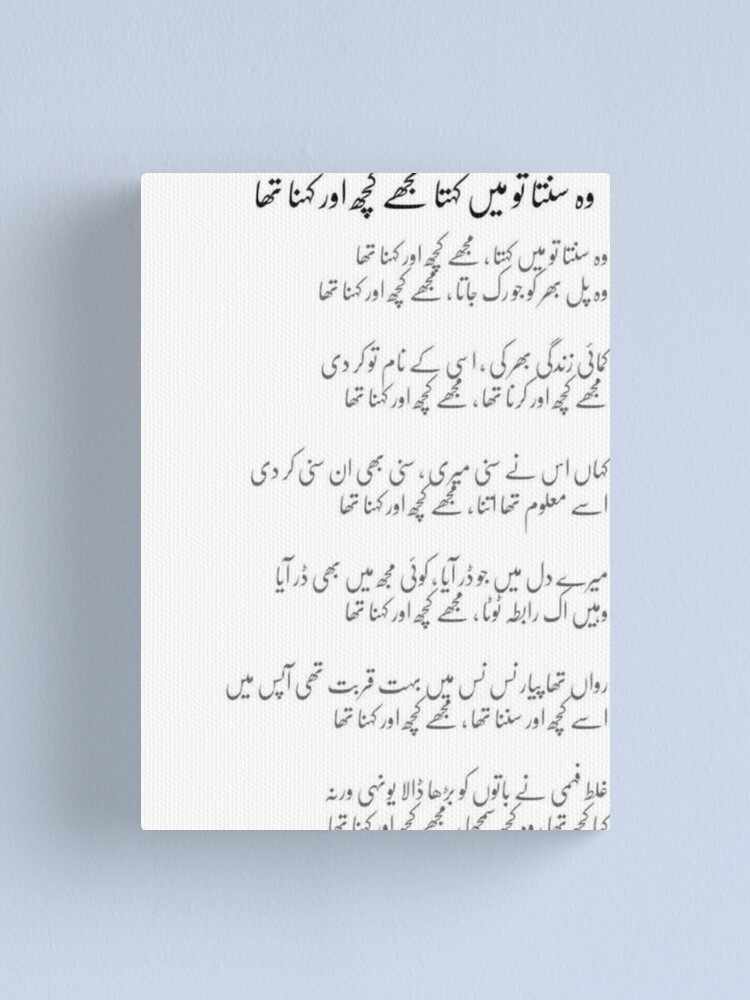 وہ سنتا تو میں کہتا مجھے کچھ اور کہنا تھا
وہ سنتا تو میں کہتا ، مجھے کچھ اور کہنا تھا
وہ پل بھر کو جو رک جاتا ، مجھے کچھ اور کہنا تھا
کمائی زندگی بھر کی ، اسی کے نام تو کر دی
مجھے کچھ اور کرنا تھا ، مجھے کچھ اور کہنا تھا
کہاں اس نے سنی میری ، سنی بھی ان سنی کر دی
اسے معلوم تھا اتنا ، مجھے کچھ اور کہنا تھا
میرے دل میں جو ڈر آیا ، کوئی مجھ میں بھی ڈر آیا
وہیں اک رابطہ ٹوٹا ، مجھے کچھ اور کہنا تھا
رواں تھا پیار نس نس میں بہت قربت تھی آپس میں
اسے کچھ اور سننا تھا ، مجھے کچھ اور کہنا تھا
غلط فہمی نے باتوں کو بڑھا ڈالا یونہی ورنہ
کہا کچھ تھا ، وہ کچھ سمجھا ، مجھے کچھ اور کہنا تھا